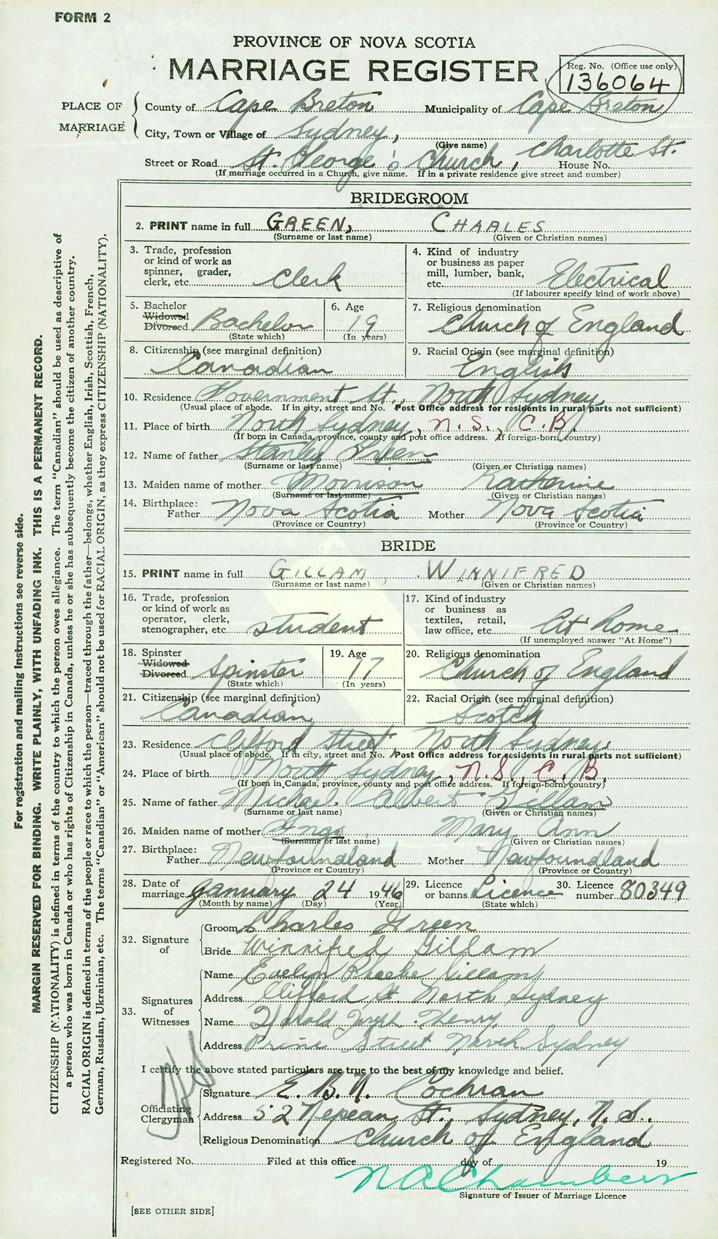 FORM 2
PROVINCE OF NOVA SCOTIA
MARRIAGE REGISTER
Reg. No. (Office use only)
136064
PLACE OF MARRIAGE
County of Cape Breton Municipality of Cape Breton
City, Town or Village of Sydney,
(Give name)
Street or Road St. George's Church, Charlotte St. House No.
(If marriage occurred in a Church, give name. If in a private residence give street and number)
BRIDEGROOM
2. PRINT name in full GREEN, CHARLES
(Surname or last name) (Given or Christian names)
3. Trade, profession or kind of work as spinner, grader, clerk, etc. Clerk
4. Kind of industry or business as paper mill, lumber, bank, etc. Electrical
(If labourer specify kind of work above)
5. Bachelor Widowed Divorced Bachelor
(State which)
6. Age 19
(In years)
7. Religious denomination
Church of England
8. Citizenship (see marginal definition)
Canadian
9. Racial Origin (see marginal definition)
English
10. Residence Government St., North Sydney
(Usual place of abode. If in city, street and No. Post Office address for residents in rural parts not sufficient)
11. Place of birth North Sydney, N.S., C.B.
(If born in Canada, province, county and post office address. If foreign-born, country)
12. Name of father Stanley Green
(Surname or last name) (Given or Christian names)
13. Maiden name of mother Morrison Katherine
(Surname or last name) (Given or Christian names)
14. Birthplace: Father Nova Scotia Mother Nova Scotia
(Province or Country) (Province or Country)
BRIDE
15. PRINT name in full GILLAM, WINNIFRED
(Surname or last name) (Given or Christian names)
16. Trade, profession or kind of work as operator, clerk, stenographer, etc. student
17. Kind of industry or business as textiles, retail, law office, etc. At Home
(If unemployed answer "At Home")
18. Spinster Widowed Divorced Spinster
(State which)
19. Age 17
(In years)
20. Religious denomination
Church of England
21. Citizenship (see marginal definition)
Canadian
22. Racial Origin (see marginal definition)
Scotch
23. Residence Clifford Street North Sydney
(Usual place of abode. If in city, street and No. Post Office address for residents in rural parts not sufficient)
24. Place of birth North Sydney, N.S., C.B.
(If born in Canada, province, county and post office address. If foreign-born country)
25. Name of father Michael Albert Gillam
(Surname or last name) (Given or Christian names)
26. Maiden name of mother Mary Ann
(Surname or last name) (Given or Christian names)
27. Birthplace: Father Newfoundland Mother Newfoundland
(Province or Country) (Province or Country)
28. Date of marriage January 24 1946
(Month by name) (Day) (Year)
29. Licence or banns Licence
(State which)
30. Licence number 80349
32. Signature of
Groom Charles Green
Bride Winnifred Gillam
33. Signatures of Witnesses
Name Evelyn
Address Clifford St. North Sydney
Name Harold Joseph Henry
Address Street North Sydney
I certify the above stated particulars are true to the best of my knowledge and belief.
Officiating Clergyman
Signature E. B. N. Cochran
Address 52 Nepean St., Sydney, N.S.
Religious Denomination Church of England
Registered No. Filed at this office day of 19
N A Chambers
Signature of Issuer of Marriage Licence
[SEE OTHER SIDE]
For registration and mailing Instructions see reverse side.
MARGIN RESERVED FOR BINDING. WRITE PLAINLY, WITH UNFADING INK. THIS IS A PERMANENT RECORD.
CITIZENSHIP (NATIONALITY) is defined in terms of the country to which the person owes allegiance. The term "Canadian" should be used as descriptive of
a person who was born in Canada or who has rights of Citizenship in Canada, unless he or she has subsequently become the citizen of another country.
RACIAL ORIGIN is defined in terms of the people or race to which the person—traced through the father—belongs, whether English, Irish, Scottish, French,
German, Russian, Ukrainian, etc. The terms "Canadian" or "American" should not be used for RACIAL ORIGIN, as they express CITIZENSHIP (NATIONALITY).